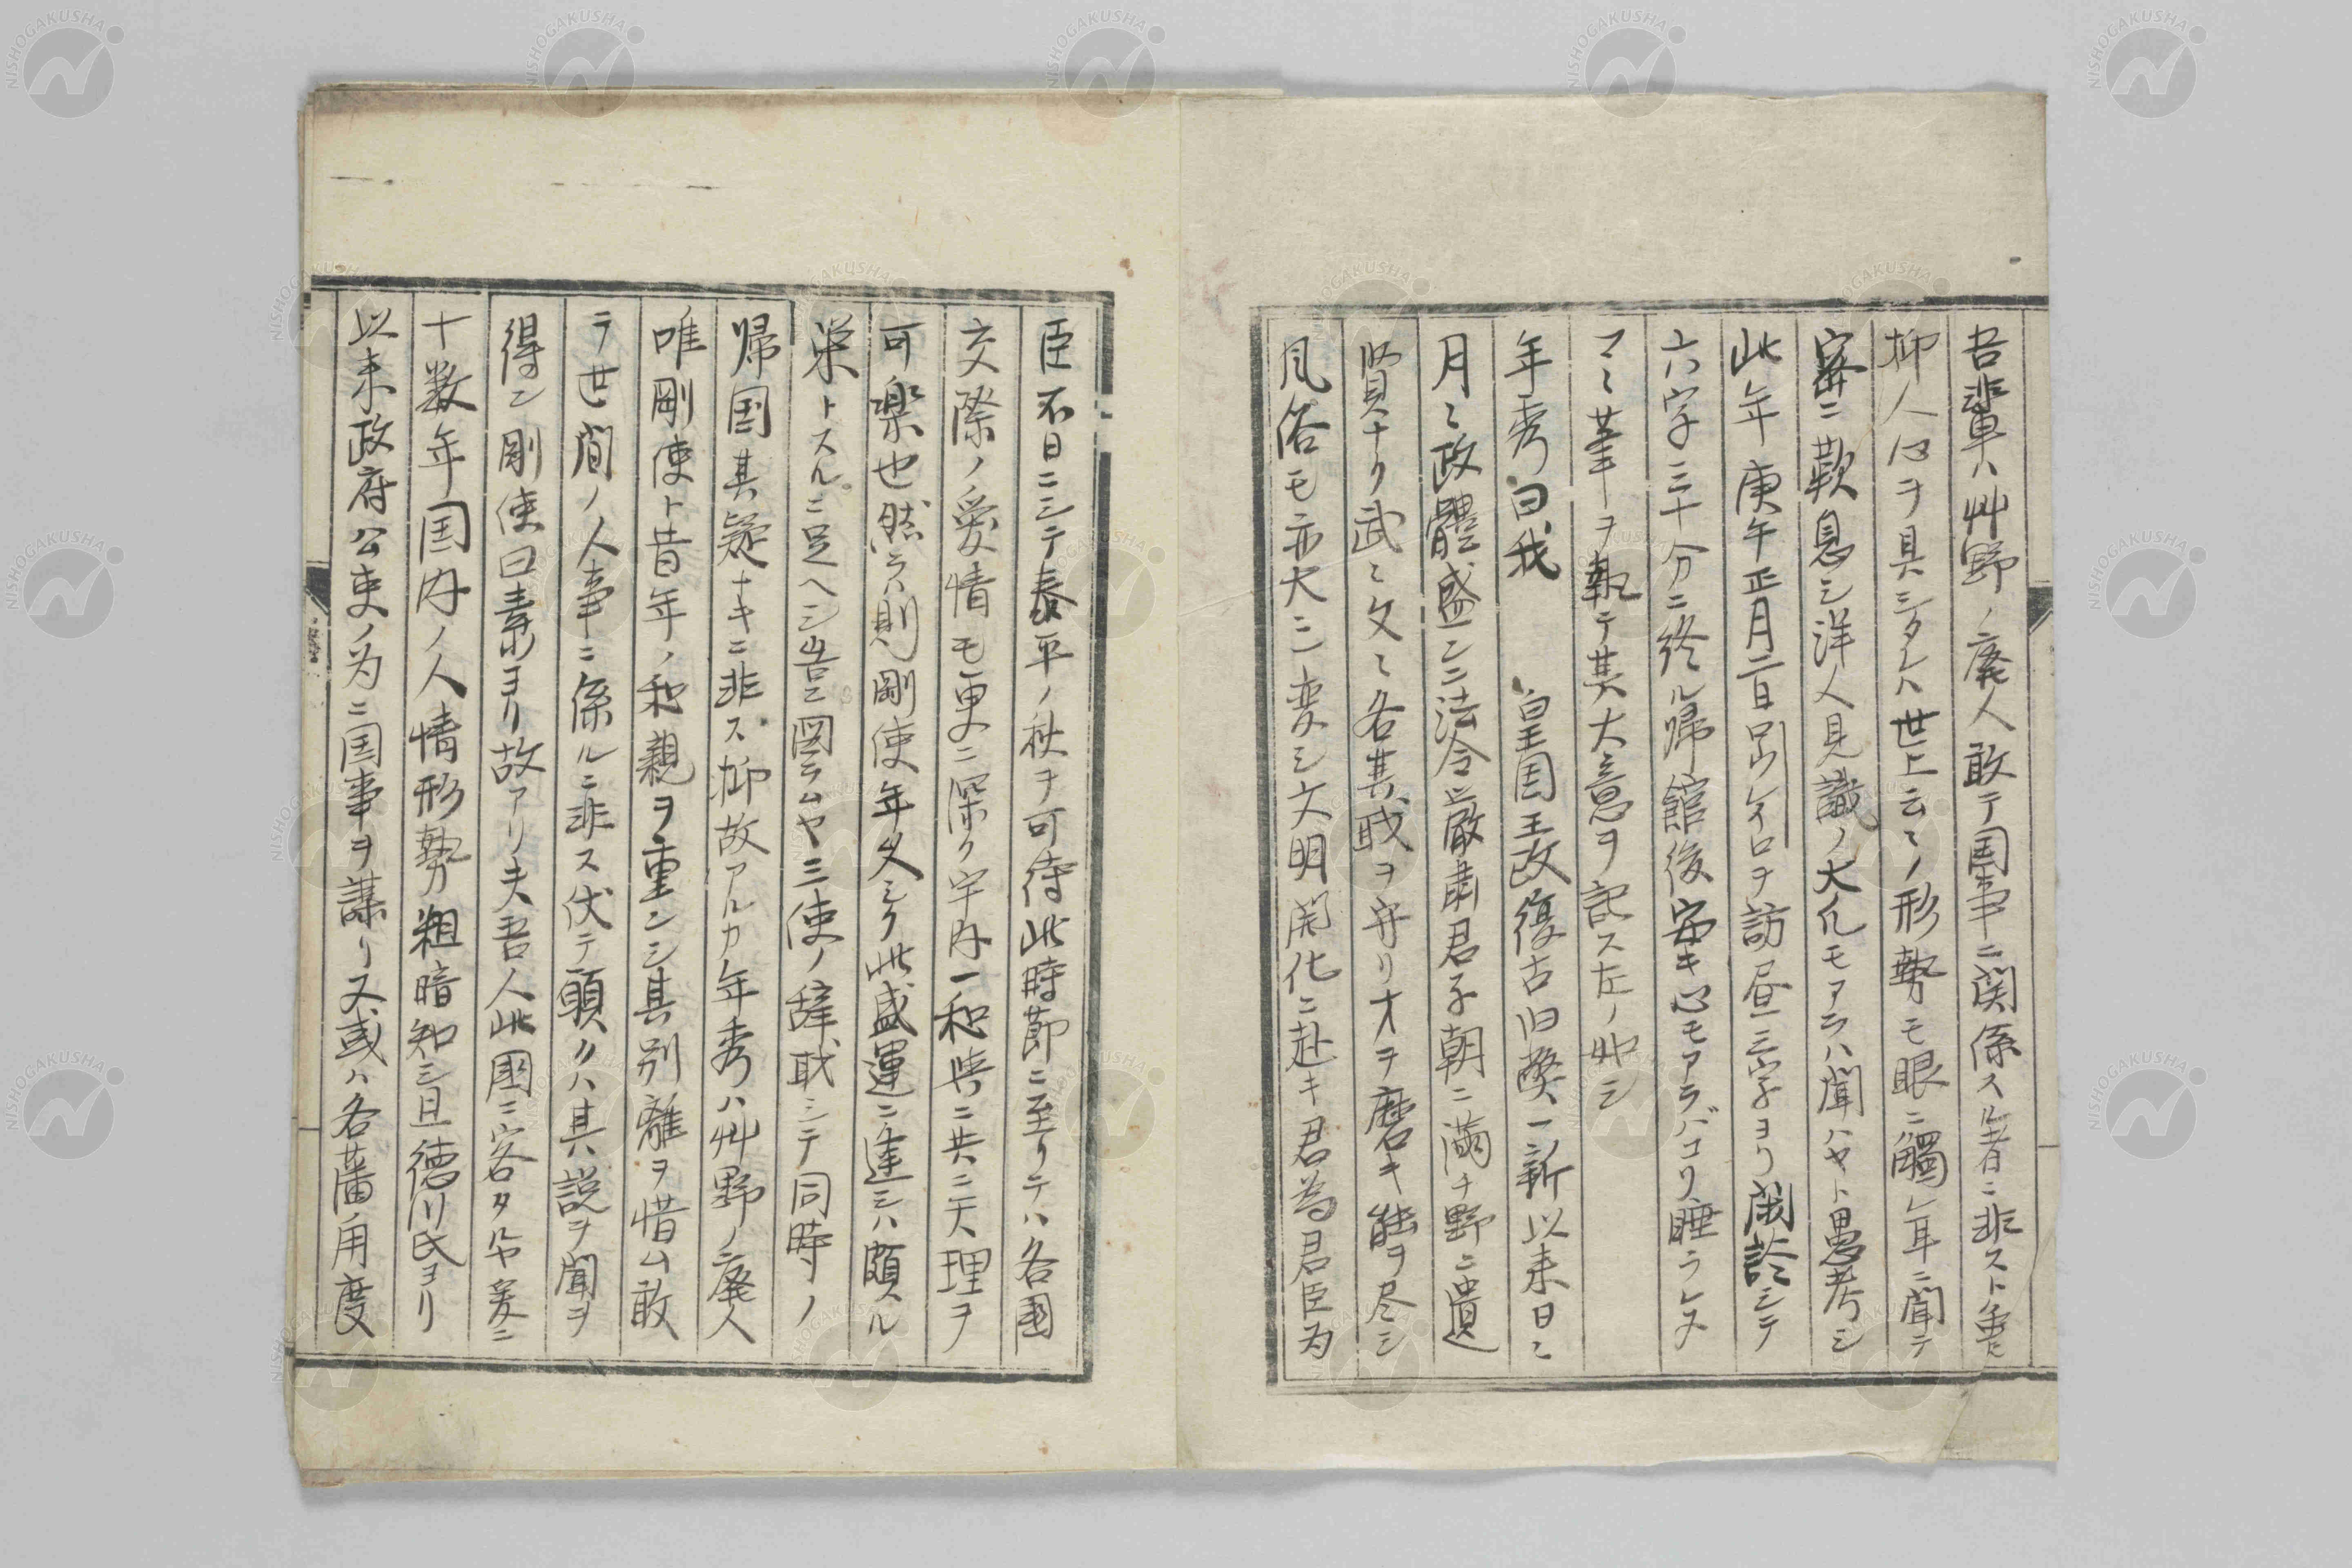 吾輩ハ艸野ノ廃人敢テ国事ニ関係スル者ニ非スト雖
抑人心ヲ具シタレハ世上云々ノ形勢モ眼ニ觸レ耳ニ聞テ
審ニ歎息シ洋人見識ノ大凡モアラハ聞ハヤト愚考シ
此年庚午正月二日剛ケイロヲ訪昼三字ヨリ閑談シテ
六字三十分ニ終ル帰館後安キ心モアラバコソ睡ラレヌ
マヽ筆ヲ執テ其大意ヲ記ス左ノ如シ
年秀曰我 皇国王政復古旧弊一新以来日ニ
月ニ政體盛ンニ法令嚴粛君子朝ニ満チ野ニ遺
賢ナク武ニ文ニ各其職ヲ守リオヲ磨キ能ヲ尽シ
風俗モ亦大ニ変シ文明開化ニ赴キ君為君臣為
臣不日ニシテ泰平ノ秋ヲ可待此時節ニ至リテハ各國
交際ノ愛情モ更ニ深ク宇内一和与ニ共ニ天理ヲ
可楽也然ラハ則剛使年久シク此盛運ニ逢ミハ頗ル
栄トスルニ足ヘシ豈図ラムヤ三使ノ辞職シテ同時ノ
帰国其疑ナキニ非ス抑故アルカ年秀ハ艸野ノ廃人
唯剛使ト昔年ノ和親ヲ重ンシ其別離ヲ惜ム敢
テ世間ノ人事ニ係ルニ非ス伏テ願クハ其説ヲ聞ヲ
得ン剛使曰素ヨリ故アリ夫吾人此國ニ客タルヤ爰ニ
十数年国内ノ人情形勢粗暗知シ且徳川氏ヨリ
以来政府公吏ノ為ニ国事ヲ謀リ又或ハ各藩用度